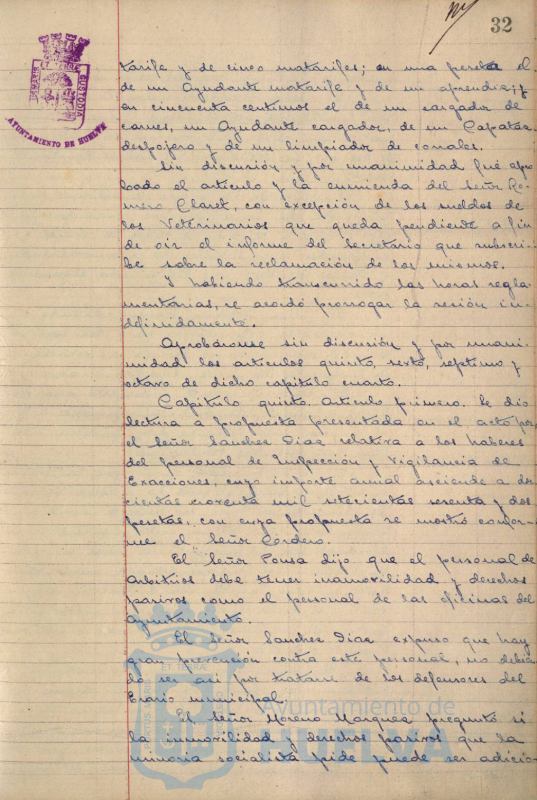 32
tarife y de cinco matarifes; en una peseta el
de un Ayudante matarife y de un aprendiz; y
en cincuenta centimos el de un cargador de
carnes, un Ayudante cargador, de un Capataz
despojero y de un limpiador de corrales.
Sin discusión y por unanimidad fué apro-
bado el articulo y la enmienda del Señor Ro-
mero Claret, con excepción de los sueldos de
los Veterinarios que queda pendiente a fin
de oir el informe del Secretario que subscri-
be sobre la reclamación de los mismos.
Y habiendo transcurrido las horas regla-
mentarias, se acordó prorrogar la sesión in-
definidamente.
Aprobáronse sin discusión y por unani-
midad los articulos quinto, sexto, septimo y
octavo de dicho capitulo cuarto.
Capitulo quinto. Articulo primero. Se dió
lectura a propuesta presentada en el acto por
el Señor Sanchez Diaz relativa a los haberes
del personal de Inspección y Vigilancia de
Exacciones, cuyo importe anual asciende a dos-
cientas noventa mil setecientas sesenta y dos
pesetas, con cuya propuesta se mostró confor-
me el Señor Cordero.
El Señor Ponsa dijo que el personal de
Arbitrios debe tener inamovilidad y derechos
pasivos como el personal de las oficinas del
Ayuntamiento.
El Señor Sanchez Diaz expuso que hay
gran prevención contra este personal, no debien-
do ser asi por tratarse de los defensores del
Erario municipal.
El Señor Moreno Marquez preguntó si
la inmovilidad y derechos pasivos que la
minoria socialista pide puede ser adicio-
AYUNTAMIENTO DE HUELVA
CUSTODIA
Ayuntamiento de
HUELVA